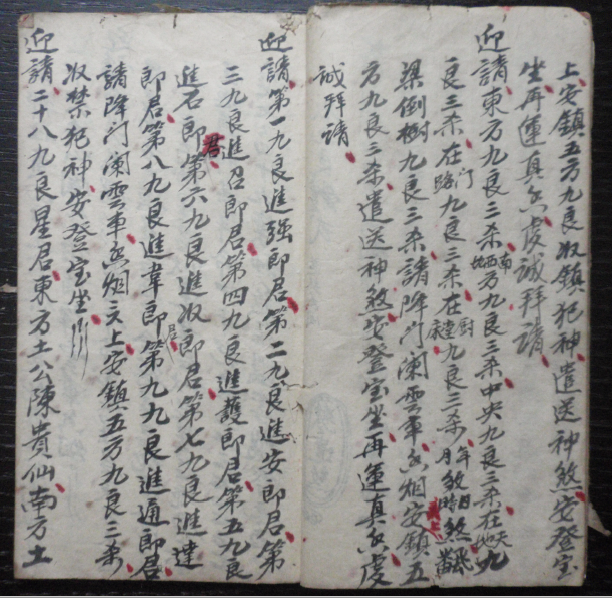 上安鎮五方九良收鎮犯神遣送神煞安登宝
坐再運真香虔誠拜請
迎請東方九良三杀南西北方九良三杀中央九良三杀在天地九
良三杀在門路九良三杀在厨九良三杀年月日時煞
梁倒樹九良三杀請降门闌雲車香烟安鎮五
方九良三杀遣送神煞安登宝坐再運真香虔
誠拜請
迎請第一九良進強郎君第二九良進安郎君第
三九良進召郎君第四九良進護郎君第五九良
進右郎君第六九良進收郎君第七九良進達
郎君第八九良進韋郎君第九九良進通郎君
請降门闌雲車香烟天上安鎮五方九良三杀
收禁犯神安登宝坐
迎請二十八九良星君東方土公陳貴仙南方土